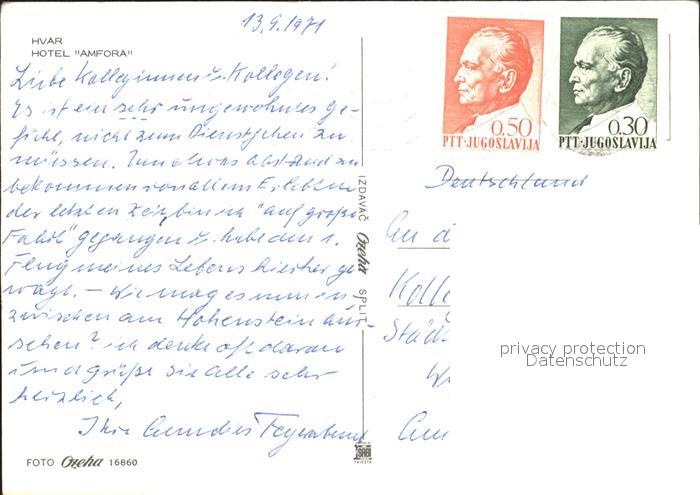 13.9.1971
HVAR
HOTEL "AMFORA"
Liebe Kolleginnen u. Kollegen!
Es ist ein sehr ungewohntes Ge-
fühl, nicht zum Dienst gehen zu
müssen. Um etwas Abstand zu
bekommen von allem Erlebten
der letzten Zeit, bin ich "auf große
Fahrt" gegangen u. habe den 1.
Flug meines Lebens hierher ge-
wagt. – Wie mag es nun in-
zwischen am Hohenstein aus-
sehen? Ich denke oft daran
und grüße Sie alle sehr
herzlich,
Ihre
FOTO Ozeha 16860
IZDAVAČ Ozeha SPLIT
0.50
PTT·JUGOSLAVIJA
0.30
PTT·JUGOSLAVIJA
Deutschland
An d
Kolle
Städt
Am
privacy protection
Datenschutz